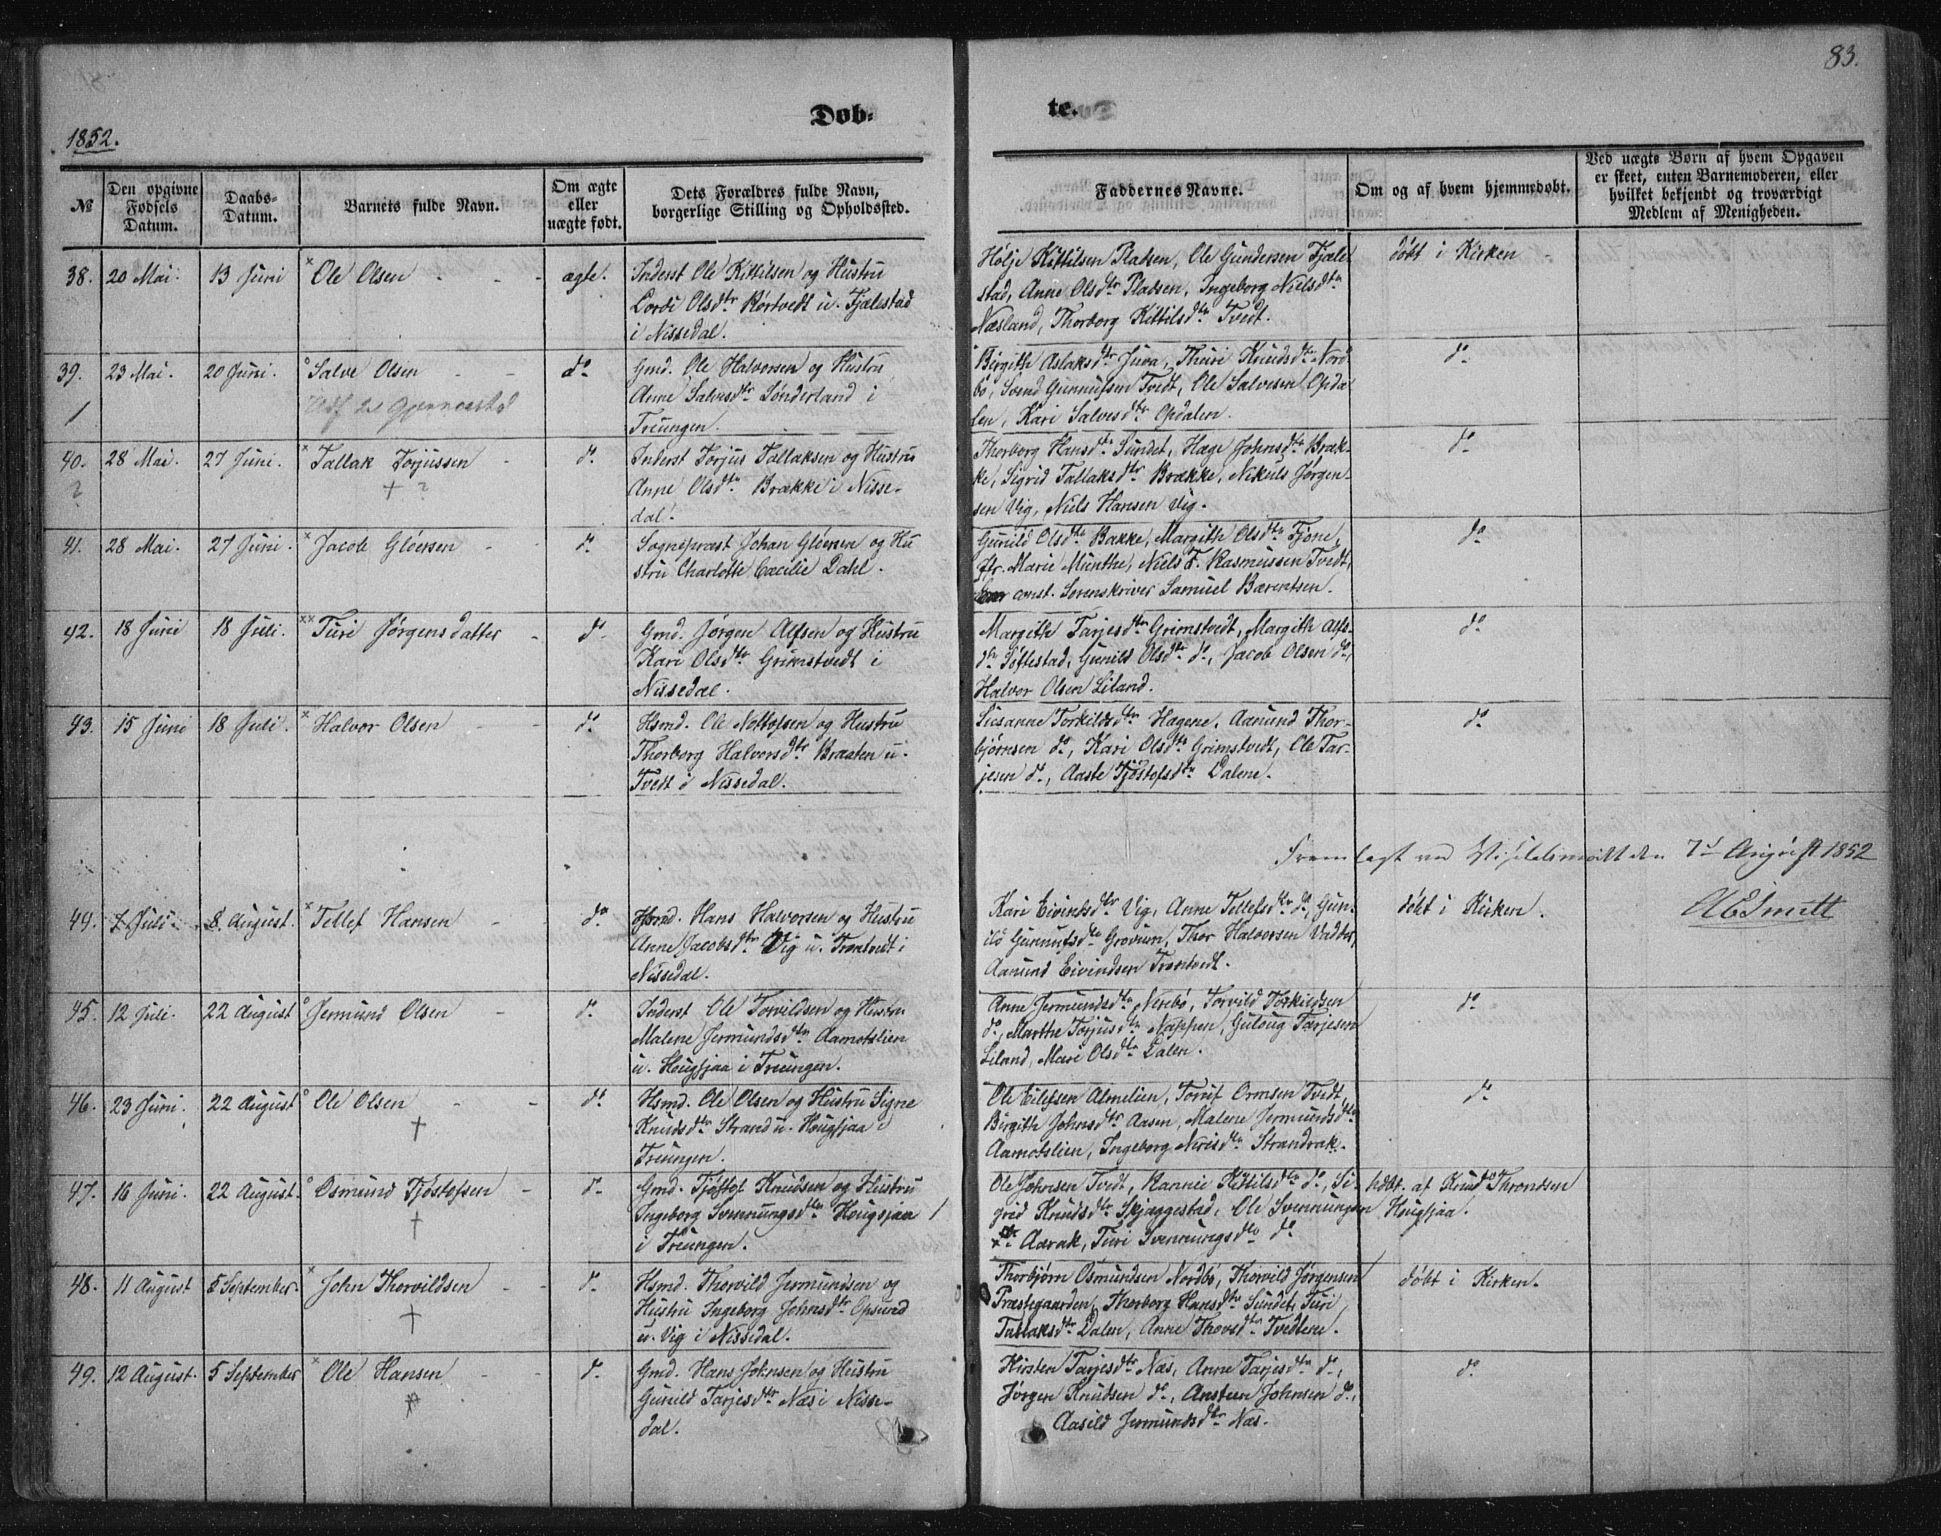 83.
Døb-
te.
1852.
№
Den opgivne Fødsels Datum.
Daabs-Datum.
Barnets fulde Navn.
Om ægte eller uægte født.
Dets Forældres fulde Navn, borgerlige Stilling og Opholdssted.
Faddernes Navne.
Om og af hvem hjemmedøbt.
Ved uægte Børn af hvem Opgaven er skeet, enten Barnemoderen, eller hvilket bekjendt og troværdigt Medlem af Menigheden.
38. 20 Mai. 13 Juni × Ole Olsen - - - ægte.
Inderst Ole Kittilsen og Hustru
Lovdi Olsdtr Rørtvedt u. Fjælestad
i Nissedal.
Hølje Kittilsen Pladsen, Ole Gundersen Fjæle
stad, Anne Olsdtr Pladsen, Ingeborg Nielsdtr
Næsland, Thorborg Kittilsdtr Tvedt.
døbt i Kirken
39. 23 Mai. 20 Juni. ° Salve Olsen - - do
1
Gmd. Ole Halvorsen og Hustru
Anne Salvesdtr Sønderland i
Treungen.
Birgith Aslaksdtr Juva, Thuri Knudsdtr Nord
bø, Svend Gunnufsen Tvedt, Ole Salvesen Opda
len, Kari Salvesdtr Opdalen.
do
40. 28 Mai. 27 Juni. × Tallak Torjussen - do
?
† ?
Inderst Torjus Tallaksen og Hustru
Anne Olsdtr Brække i Nisse-
dal.
Thorborg Hansdtr Sundet, Hæge Johnsdtr Bræk-
ke, Sigrid Tallaksdtr Brække, Nikuls Jørgen-
sen Vig, Niels Hansen Vig.
do
41. 28 Mai. 27 Juni. × Jacob Gløersen - - do
Sognepræst Johan Gløersen og Hu
stru Charlotte Cæcilie Dahl.
Gunild Olsdtr Bakke, Margith Olsdtr Fjone,
Fr. Marie Munthe, Niels F. Rasmussen Tvedt,
const. Sorenskriver Samuel Barentsen.
do
42. 18 Juni 18 Juli. ×× Turi Jørgensdatter - do
Gmd. Jørgen Alfsen og Hustru
Kari Olsdtr Grimstvedt i
Nissedal.
Margith Tarjesdtr Grimstvedt, Margith Alfs-
dtr Tøftestad, Gunild Olsdtr do, Jacob Olsen do,
Halvor Olsen Liland.
do
43. 15 Juni 18 Juli. × Halvor Olsen - - do
Hsmd. Ole Nottolfsen og Hustru
Thorborg Halvorsdtr Braaten u.
Tvedt i Nissedal.
Susanne Torkildsdtr Hagene, Aanund Thor-
bjørnsen do, Kari Olsdtr Grimstvedt, Ole Tar-
jesen do, Aaste Tjøstofsdtr Dalene.
do
Fremlagt ved Visitatsmødet den 7d August 1852
44. 7 Juli. 8. August. × Tellef Hansen - do
Hsmd. Hans Halvorsen og Hustru
Anne Jacobsdtr Vig u. Trontvedt i
Nissedal.
Kari Eivindsdtr Vig, Anne Tellefsdtr do, Gun-
ild Gunnufsdtr Grovum, Thor Halvorsen Vadder,
Aanund Eivindsen Trontvedt.
døbt i Kirken.
45. 12 Juli. 22 August ° Jermund Olsen - do
Inderst Ole Torvildsen og Hustru
Malene Jermundsdtr Aamotslien
u. Hougsjaa i Treungen.
Anne Jermundsdtr Nerebø, Torvild Torkildsen
do, Marthe Torjusdtr Nappen, Guloug Tarjesen
Liland, Mari Olsdtr Dalen.
do
46. 23 Juni. 22 August ° Ole Olsen - - do
†
Hsmd. Ole Olsen og Hustru Signe
Knudsdtr Strand u. Hougsjaa i
Treungen.
Ole Eilefsen Almelien, Toruf Ormsen Tvedt,
Birgith Johnsdtr Aasen, Malene Jermundsdtr
Aamotslien, Ingeborg Nirisdtr Strandrak.
do
47. 16 Juni. 22 August. ° Osmund Tjøstofsen - do
†
Gmd. Tjøstof Knudsen og Hustru
Ingeborg Svennungsdtr Hougsjaa
i Treungen.
Ole Johnsen Tvedt, Rannie Kittilsdtr do, Si-
grid Knudsdtr Skjæggestad, Ole Svennungsen
Aarak, Turi Svennungsdtr do
hdbt. af Knud Throndsen
Hougsjaa.
48. 11 August 5 September. × John Thorvildsen - - do
†
Hsmd. Thorvild Jermundsen og
Hustru Ingeborg Johnsdtr Opsund
u. Vig i Nissedal.
Thorbjørn Osmundsen Nordbø, Thorvild Jørgensen
Præstegaarden, Thorborg Hansdtr Sundet, Turi
Tallaksdtr Dalen, Anne Thovsdtr Tvedtene.
døbt i Kirken.
49. 12 August. 5 September × Ole Hansen - - do
Gmd. Hans Johnsen og Hustru
Gunild Tarjesdtr Næs i Nisse-
dal.
Kirsten Tarjesdtr Næs, Anne Tarjesdtr do,
Jørgen Knudsen do, Ansteen Johnsen do,
Aasild Jermundsdtr Næs.
do